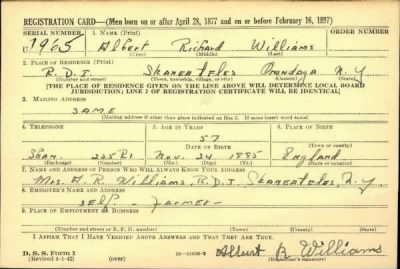 REGISTRATION CARD—(Men born on or after April 28, 1877 and on or before February 16, 1897)
SERIAL NUMBER 1. NAME (Print) ORDER NUMBER
U 1965 Albert Richard Williams
(First) (Middle) (Last)
2. PLACE OF RESIDENCE (Print)
R.D.1. Skaneateles Onondaga N.Y.
(Number and street) (Town, township, village, or city) (County) (State)
[THE PLACE OF RESIDENCE GIVEN ON THE LINE ABOVE WILL DETERMINE LOCAL BOARD
JURISDICTION; LINE 2 OF REGISTRATION CERTIFICATE WILL BE IDENTICAL]
3. MAILING ADDRESS
SAME
[Mailing address if other than place indicated on line 2. If same insert word same]
4. TELEPHONE 5. AGE IN YEARS 6. PLACE OF BIRTH
57
DATE OF BIRTH (Town or county)
Skan. Nov. 24 1885 England
(Exchange) (Number) (Mo.) (Day) (Yr.) (State or country)
7. NAME AND ADDRESS OF PERSON WHO WILL ALWAYS KNOW YOUR ADDRESS
Mrs. A. R. Williams, R.D.1 Skaneateles, N.Y.
8. EMPLOYER'S NAME AND ADDRESS
Self - Farmer -
9. PLACE OF EMPLOYMENT OR BUSINESS
(Number and street or R. F. D. number) (Town) (County) (State)
I AFFIRM THAT I HAVE VERIFIED ABOVE ANSWERS AND THAT THEY ARE TRUE.
D. S. S. Form 1
(Revised 4-1-42) (over) Albert R. Williams
(Registrant's signature)